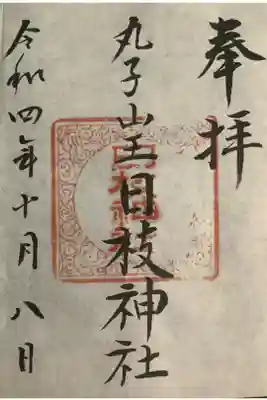 奉拝
丸子山王日枝神社
令和四年十月八日